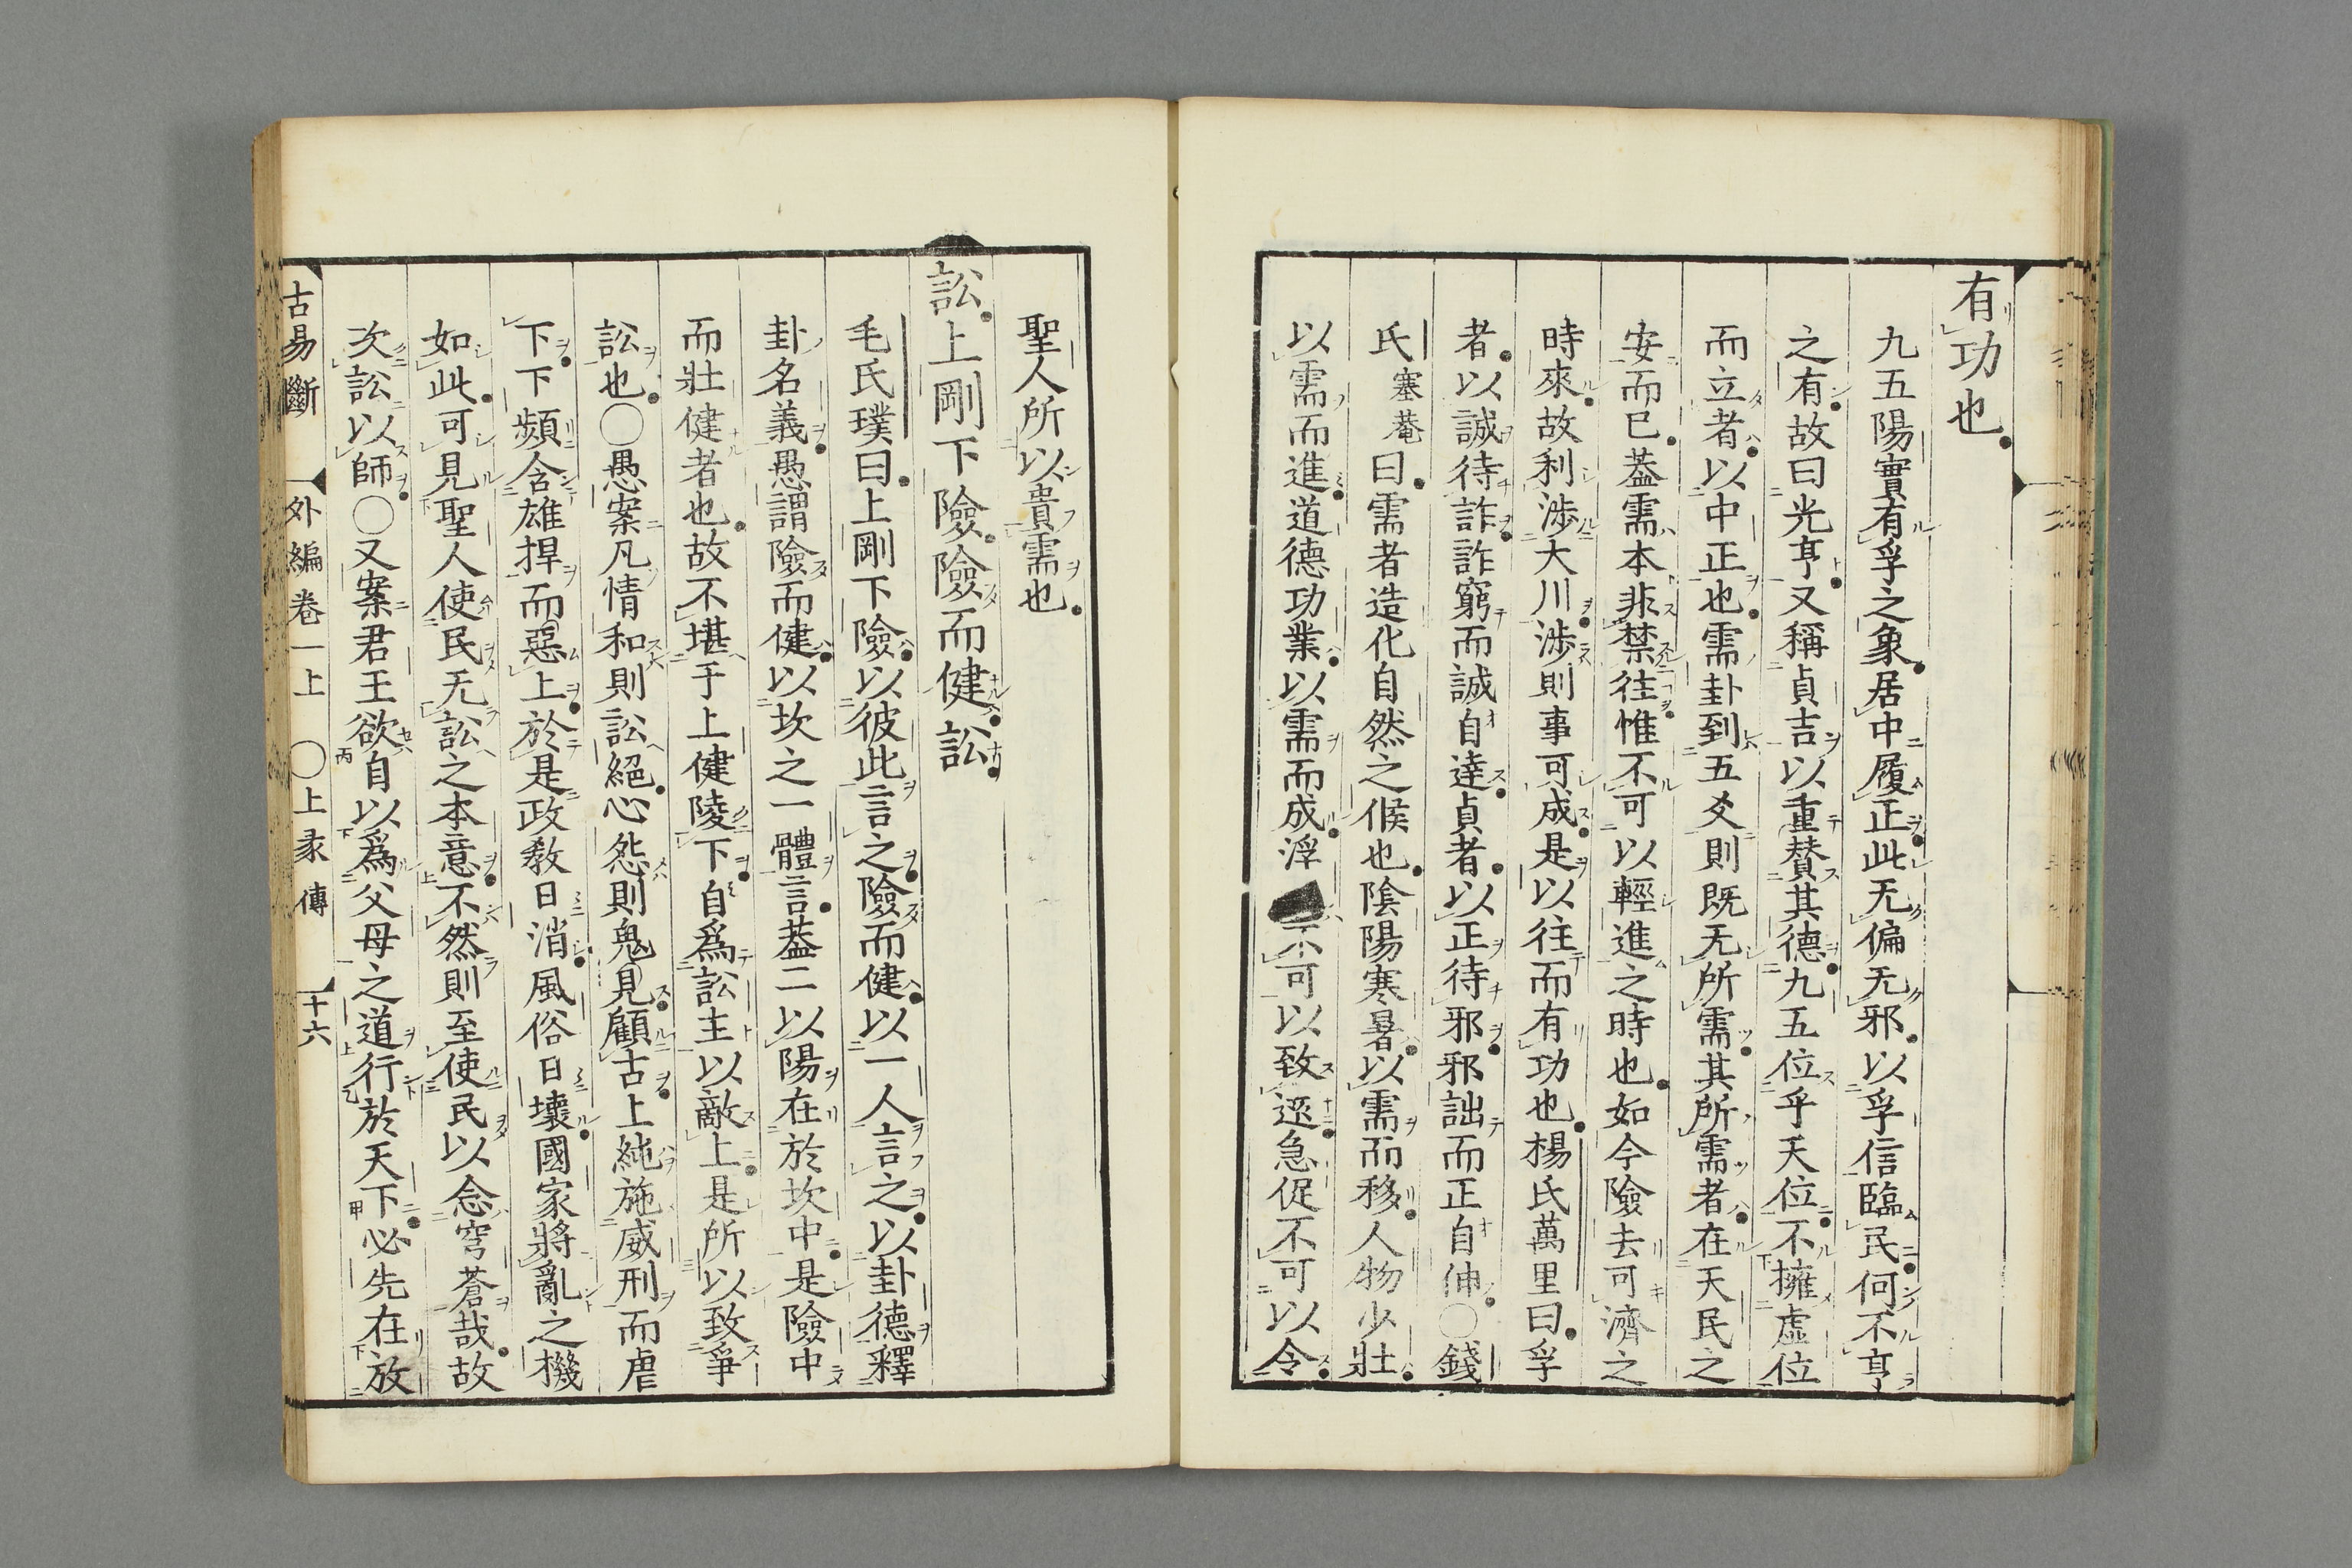 有功也
九五陽實有孚之象居中履正此无偏无邪以孚信臨民何不亨
之有故曰光亨又稱貞吉以重賛其德九五位乎天位不擁虛位
而立者以中正也需卦到五爻則既无所需其所需者在天民之
安而已葢需本非禁往惟不可以輕進之時也如今險去可濟之
時來故利涉大川涉則事可成是以往而有功也楊氏萬里曰孚
者以誠待詐詐窮而誠自達貞者以正待邪邪詘而正自伸○錢
氏塞菴曰需者造化自然之候也陰陽寒暑以需而移人物少壯
以需而進道德功業以需而成浮 不可以致逐急促不可以令
聖人所以貴需也
訟上剛下險險而健訟
毛氏璞曰上剛下險以彼此言之險而健以一人言之以卦德釋
卦名義愚謂險而健以坎之一體言葢二以陽在於坎中是險中
而壯健者也故不堪于上健陵下自爲訟主以敵上是所以致爭
訟也○愚案凡情和則訟絕心怨則鬼見顧古上純施威刑而虐
下下頻含雄捍而惡上於是政教日消風俗日壞國家將亂之機
如此可見聖人使民无訟之本意不然則至使民以念穹蒼哉故
次訟以師○又案君王欲自以爲父母之道行於天下必先在放
古易斷 外編卷一上 ○上彖傳 十六